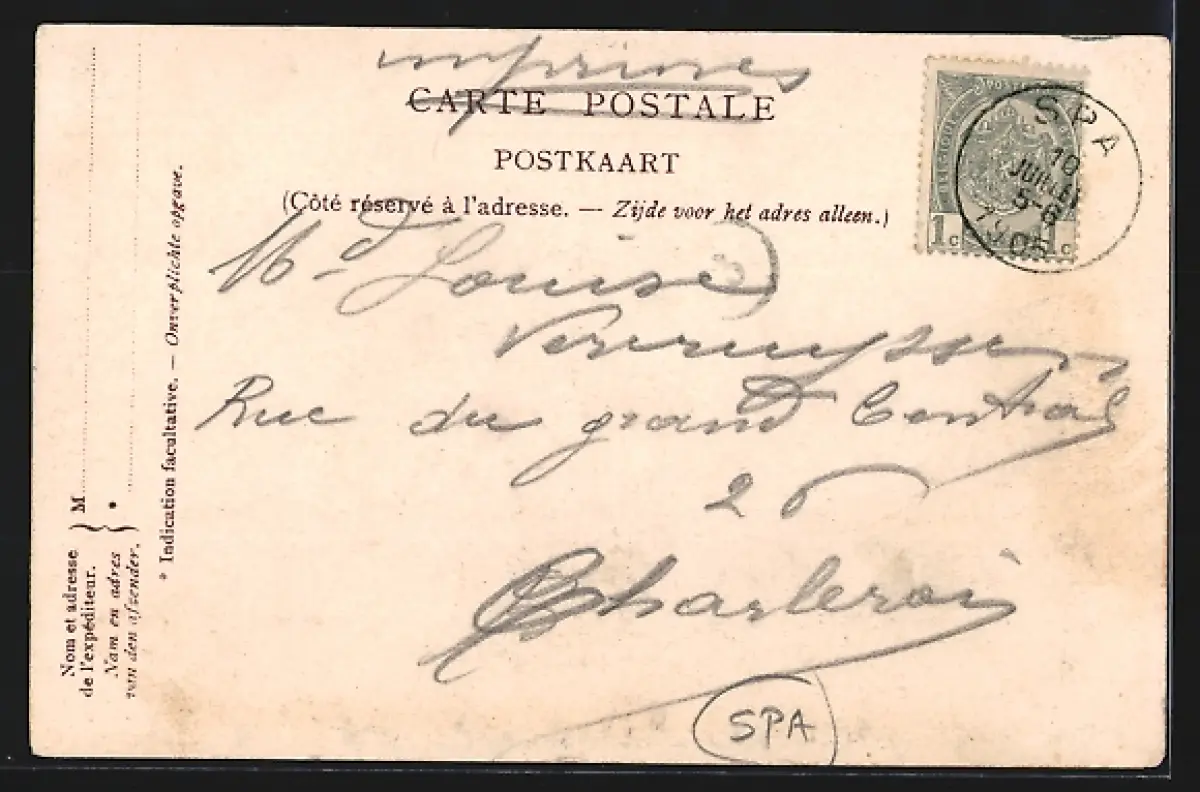 imprimés
CARTE POSTALE
POSTKAART
(Côté réservé à l'adresse. — Zijde voor het adres alleen.)
Md Louise
Rue du grand Central
26
Charleroi
SPA
SPA
10
JUILLET
5-6
1905
1c
Nom et adresse
de l'expéditeur.
Nam en adres
van den afzender.
M
*
* Indication facultative. — Onverplichte opgave.